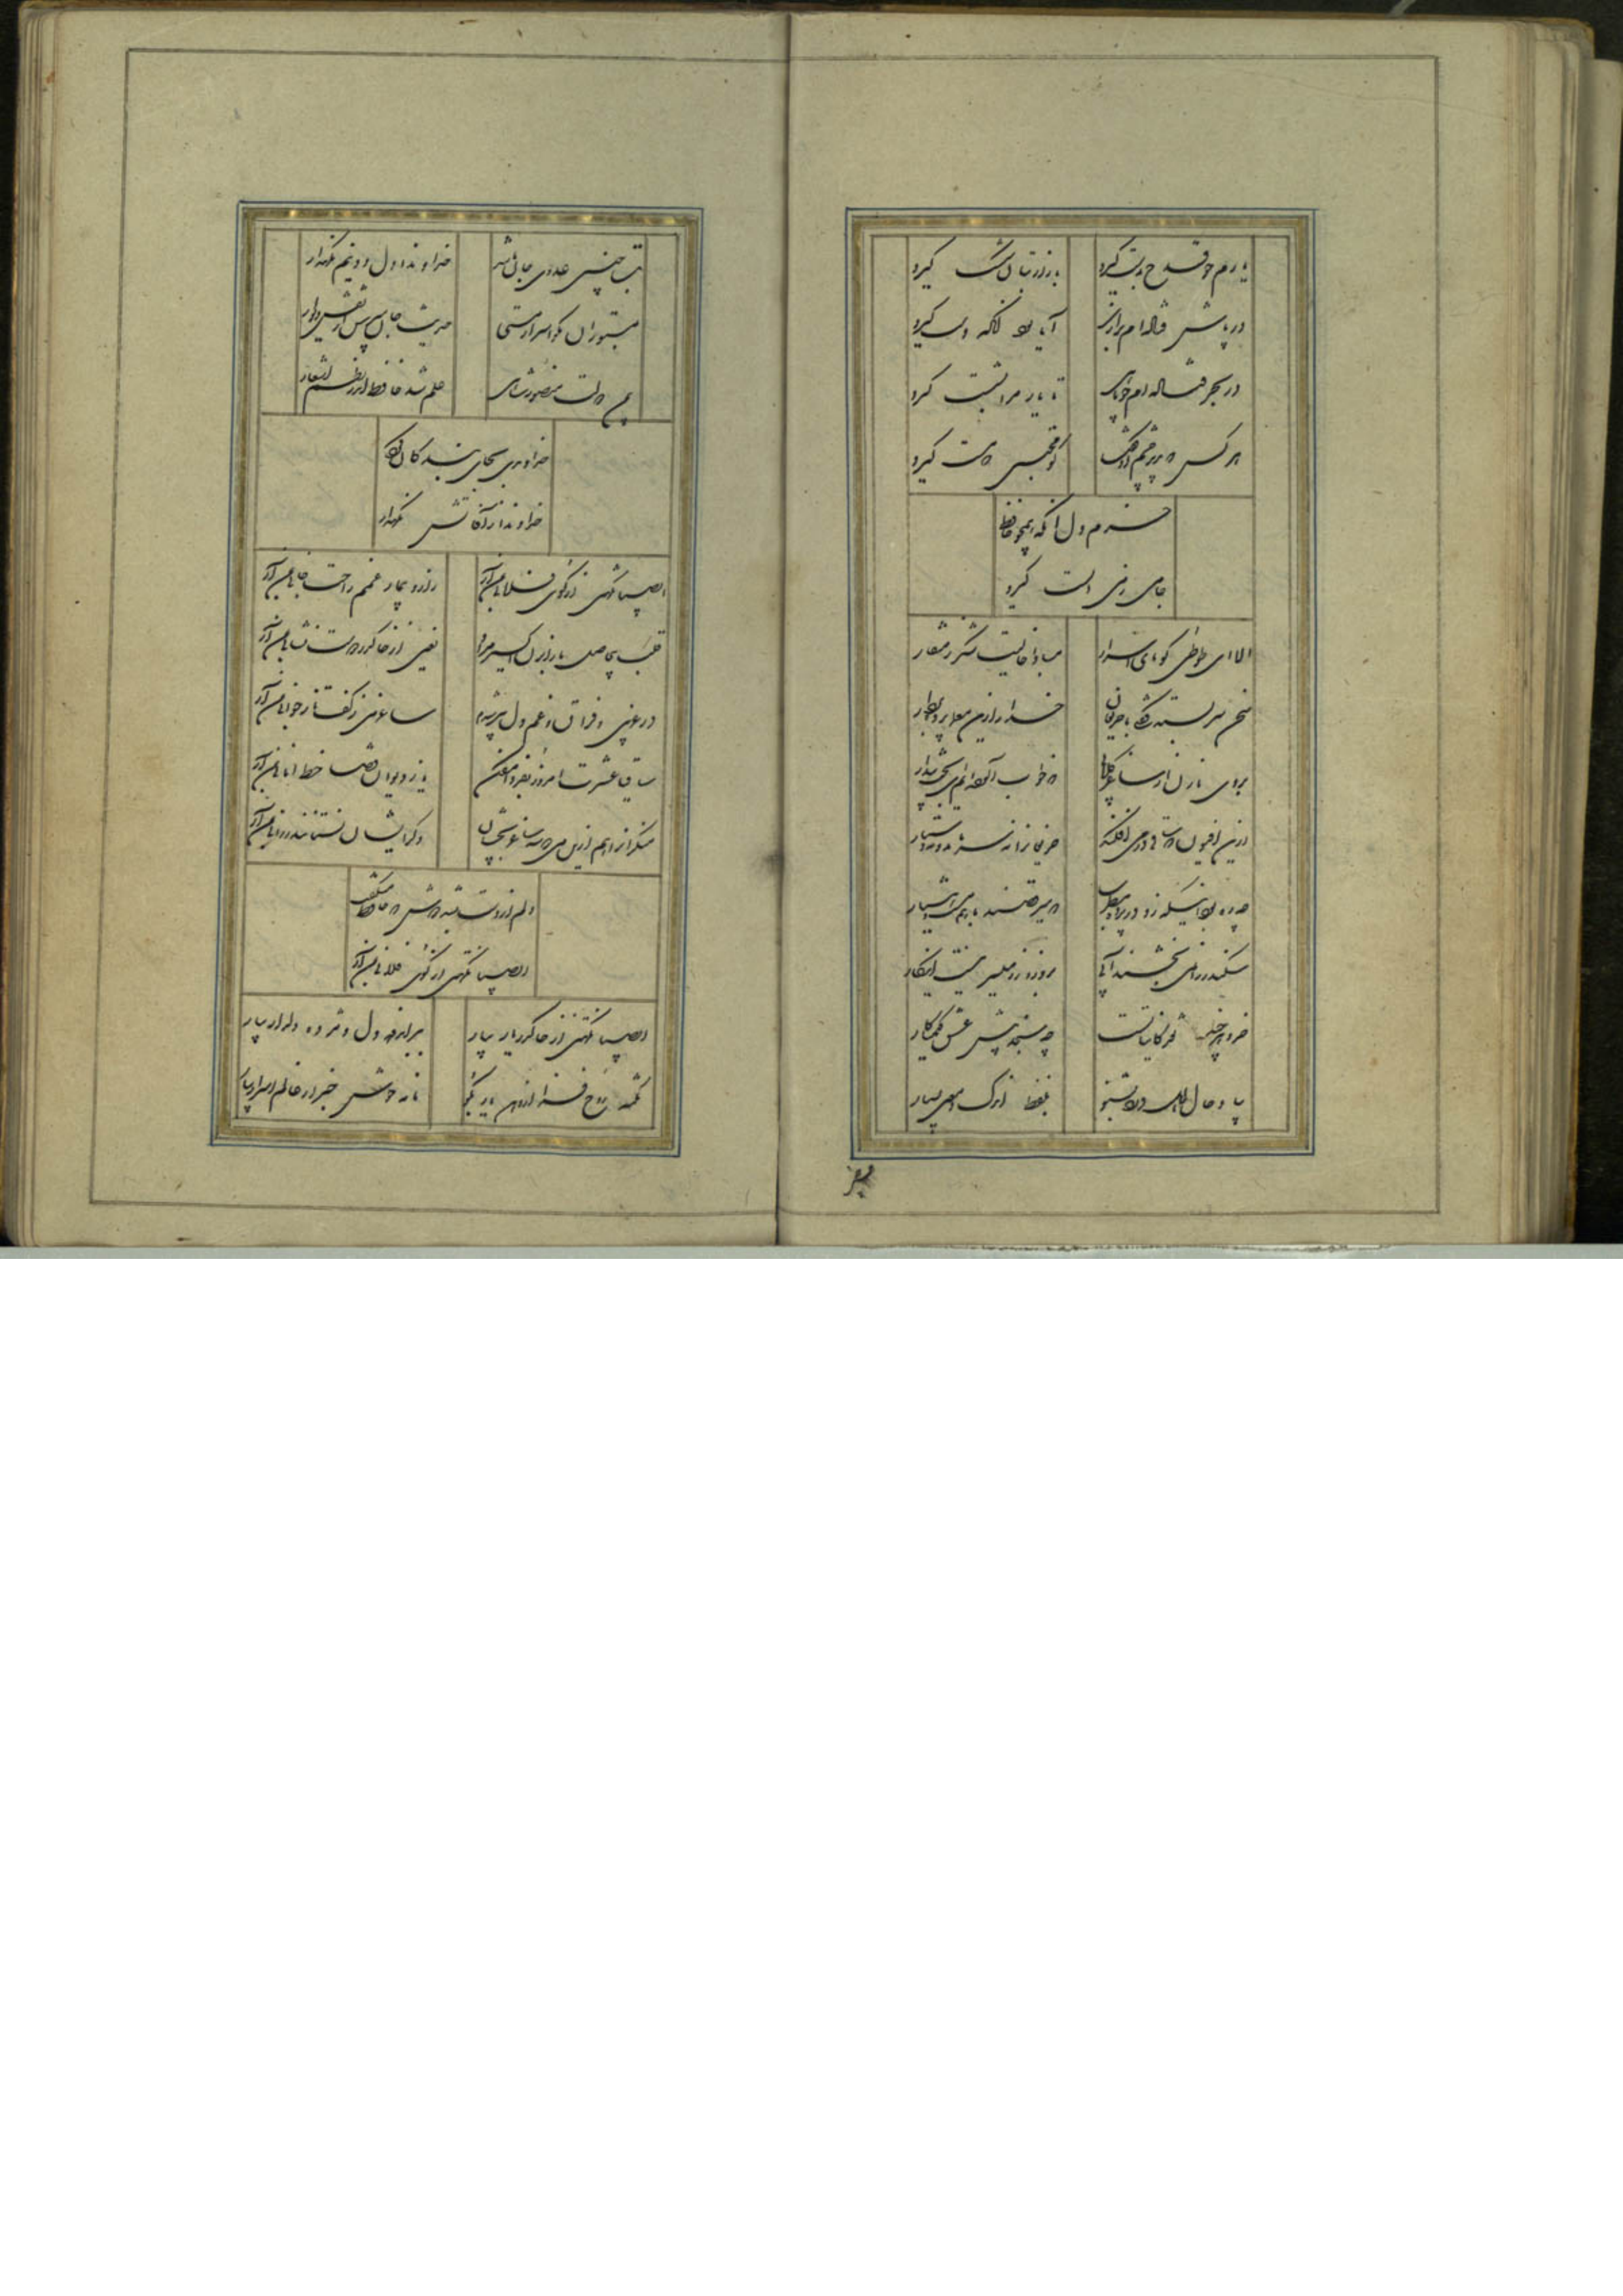 یارم چو قدح بدست گیرد
بازار بتان شکست گیرد
در پاش فتاده‌ام بزاری
آیا بود آنکه دست گیرد
در بحر فتاده‌ام چو ماهی
تا یار مرا بشست گیرد
هر کس که بدید چشم او گفت
کو محتسبی که مست گیرد
خرم دل آنکه همچو حافظ
جامی ز می الست گیرد
الا ای طوطی گویای اسرار
مبادا خالیت شکر ز منقار
سخن سربسته گفتی با حریفان
خدا را زین معما پرده بردار
بروی ما زن از ساغر گلابی
که خواب آلوده‌ایم ای بخت بیدار
ازین افیون که ساقی در می افکند
حریفانرا نه سر ماند و نه دستار
چه ره بود اینکه زد در پرده مطرب
که میرقصند باهم مست و هشیار
سکندر را نمی بخشند آبی
بزور و زر میسر نیست این کار
خرد هر چند نقد کایناتست
چه سنجد پیش عشق کیمیاکار
بیا و حال اهل درد بشنو
بلفظ اندک و معنی بسیار
بت چینی عدوی جان ما شد
خداوندا دل و دینم نگهدار
بمستوران مگو اسرار مستی
حدیث جان مپرس از نقش دیوار
بیمن دولت منصور شاهی
علم شد حافظ اندر نظم اشعار
خداوندی بجای بندگان کرد
خداوندا ز آفاتش نگهدار
ای صبا نکهتی از کوی فلانی بمن آر
زار و بیمار غمم راحت جانی بمن آر
قلب بی حاصل ما را بزن اکسیر مراد
یعنی از خاک در دوست نشانی بمن آر
در غریبی و فراق و غم دل پیر شدم
ساغر می ز کف تازه جوانی بمن آر
ساقیا عشرت امروز بفردا مفکن
یا ز دیوان قضا خط امانی بمن آر
منکرانرا هم ازین می دو سه ساغر بچشان
وگر ایشان نستانند روانی بمن آر
دلم از دست بشد دوش که حافظ میگفت
ای صبا نکهتی از کوی فلانی بمن آر
ای صبا نکهتی از خاک در یار بیار
ببر اندوه دل و مژده دلدار بیار
نکته روح فزا از دهن یار بگو
نامه خوش خبر از عالم اسرار بیار